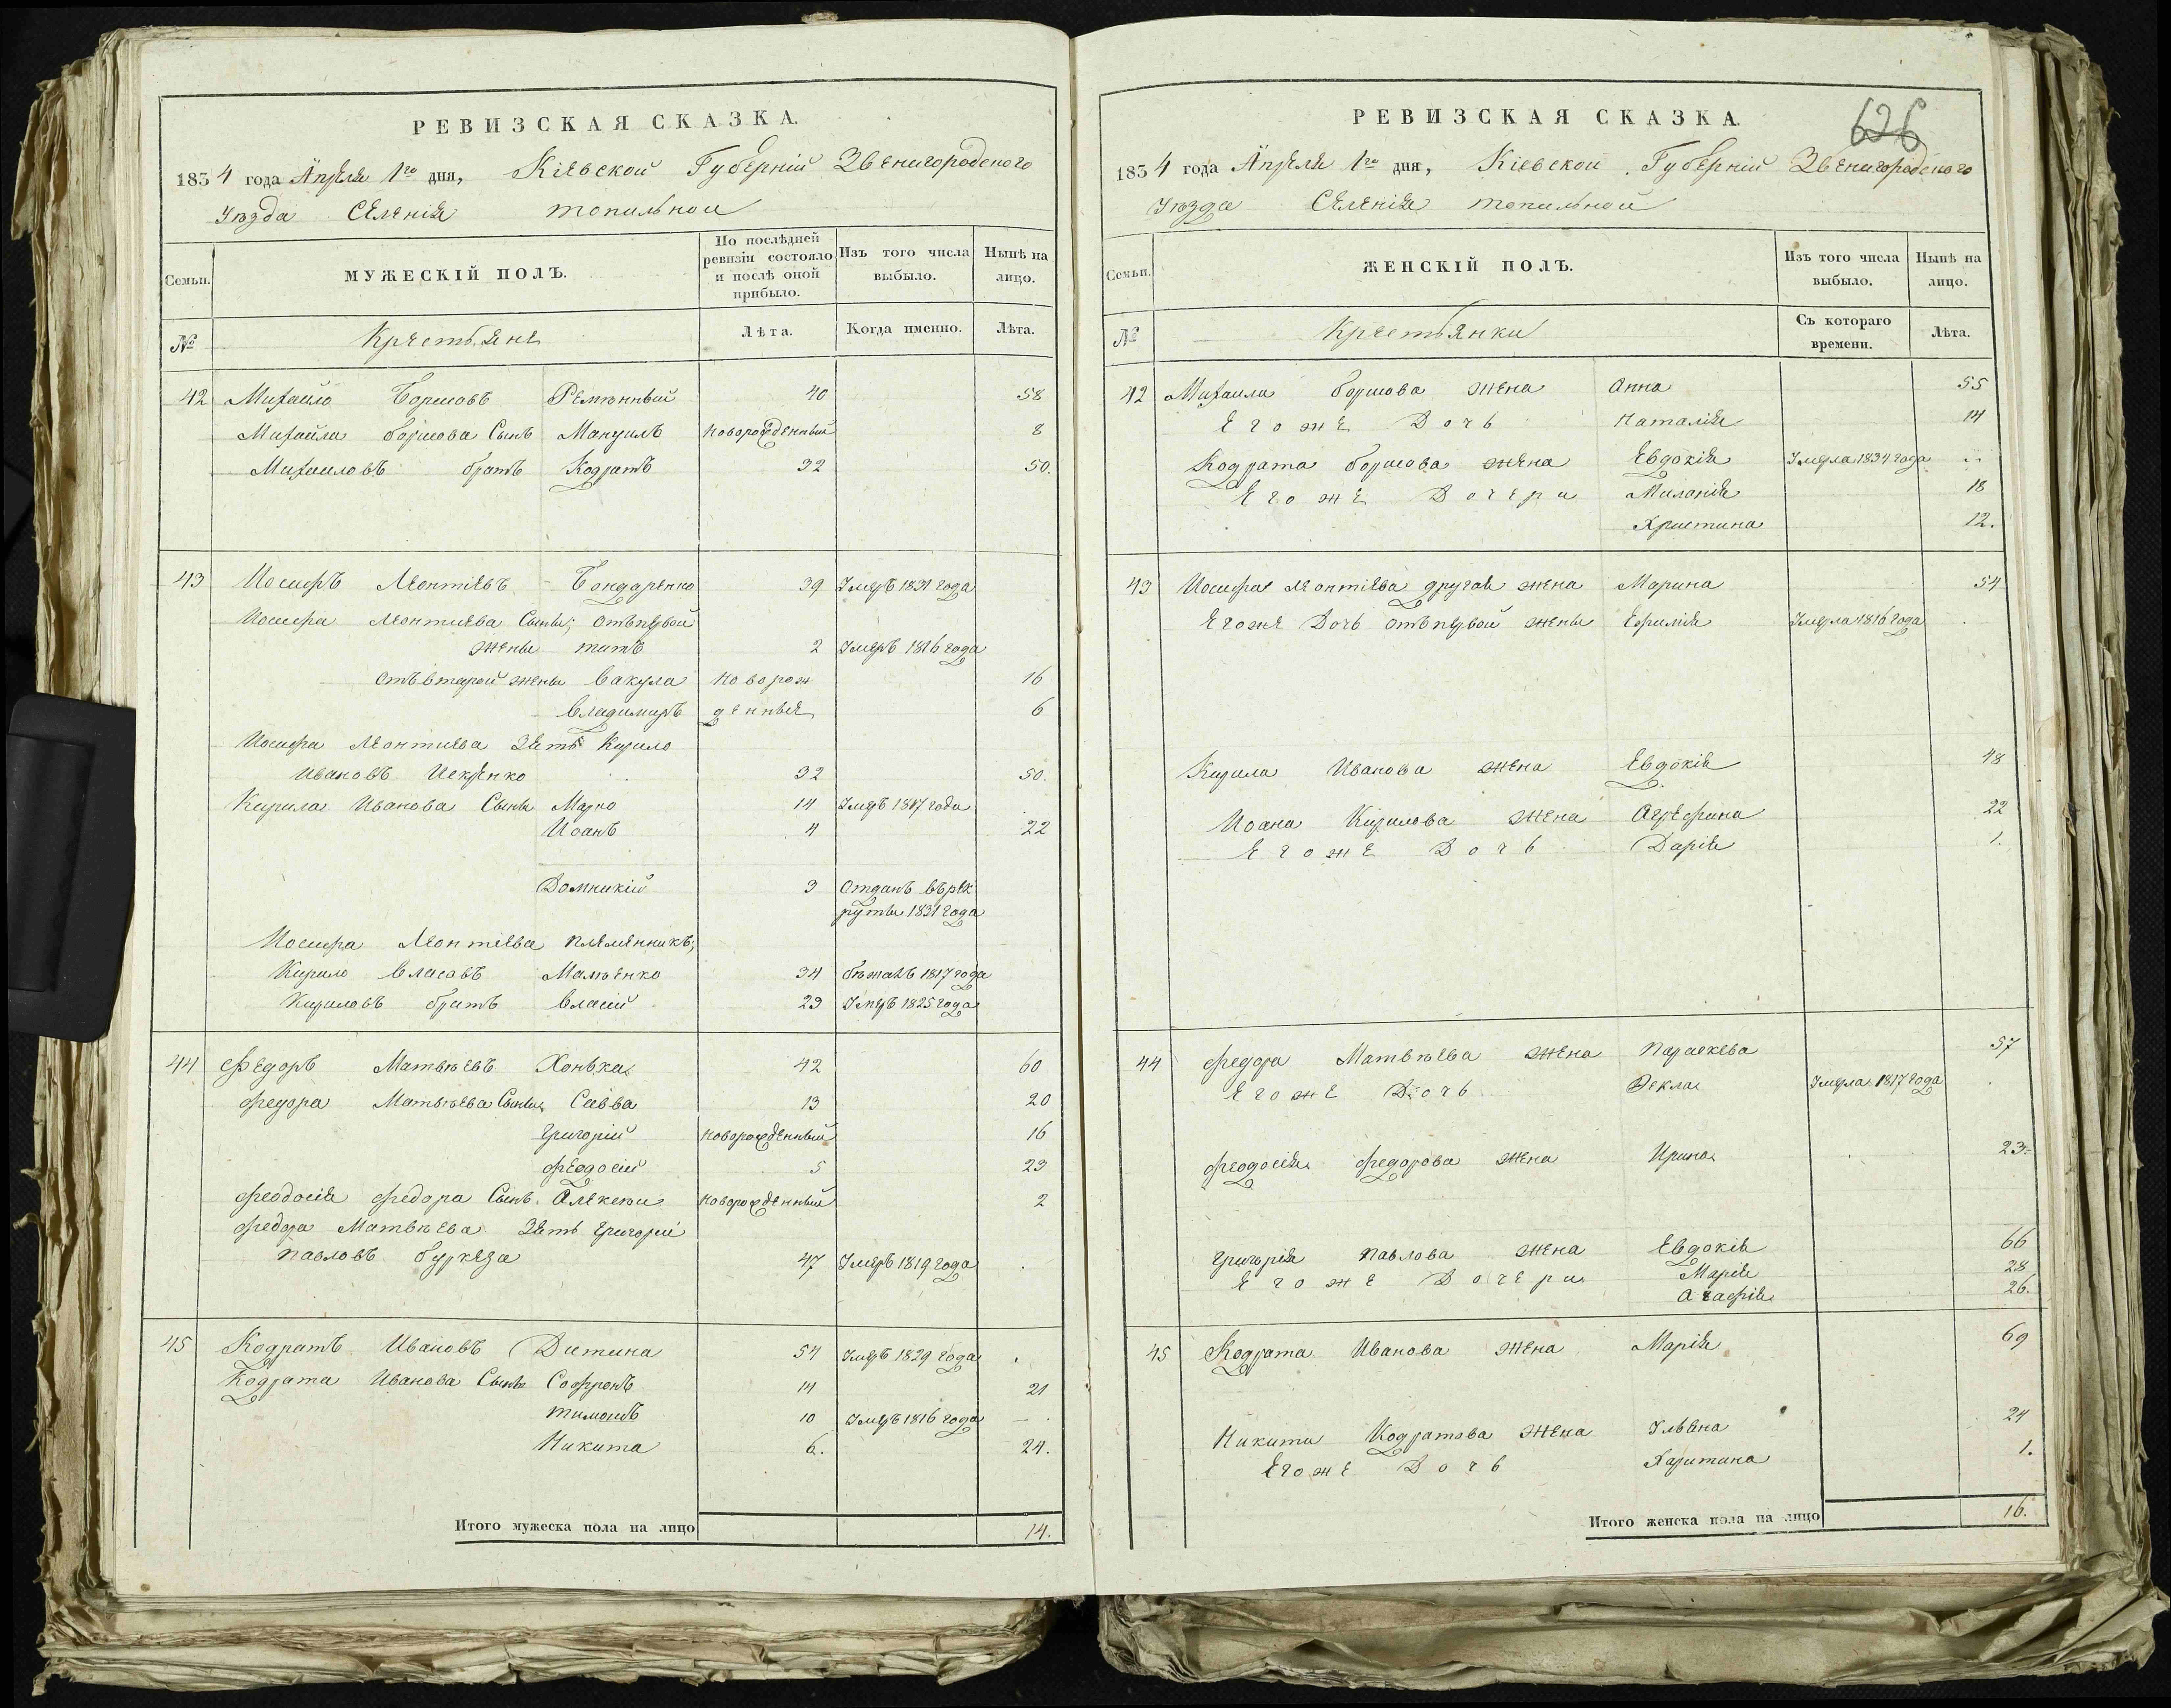 РЕВИЗСКАЯ СКАЗКА.
1834 года Апреля 1го дня, Кіевской Губерніи Звенигородского
Уѣзда Селенія Топильной
Семьи. МУЖЕСКІЙ ПОЛЪ. По послѣдней ревизіи состояло и послѣ оной прибыло. Изъ того числа выбыло. Нынѣ на лицо.
№ Крестьяне Лѣта. Когда именно. Лѣта.
42 Михайло Борисовъ Ременный 40 58
Михайла Борисова Сынъ Мануилъ новорожденный 8
Михайловъ братъ Кодратъ 32 50.
43 Иосифъ Леонтіевъ Бондаренко 39 Умеръ 1831 года
Иосифа Леонтиева Сыны; отъ первой
жены титъ 2 Умеръ 1816 года
отъ второй жены Вакула новорож 16
Владимиръ денные 6
Иосифа Леонтиева Зять Кирило
Ивановъ Искренко 32 50.
Кирила Иванова Сыны Марко 14 Умеръ 1817 года
Иоанъ 4 22
Домникій 3 Отданъ въ рек
руты 1831 года
Иосифа Леонтіева племенникъ;
Кирило Власовъ 34 бежалъ 1817 года
Кириловъ братъ Власій 23 Умеръ 1825 года
44 Федоръ Матвѣевъ Хонька 42 60
Федора Матвѣева Сыны Савва 13 20
Григорій новорожденный 16
Феодосій 5 23
Феодосія Федора Сынъ Алексей новорожденный 2
Федора Матвѣева Зять Григорій
Павловъ 47 Умеръ 1819 года
45 Кодратъ Ивановъ Дитина 54 Умеръ 1829 года
Кодрата Иванова Сыны Софронъ 14 21
тимошъ 10 Умеръ 1816 года
Никита 6. 24.
Итого мужеска пола на лицо 14.
РЕВИЗСКАЯ СКАЗКА. 626
1834 года Апреля 1го дня, Кіевской Губерніи Звенигородского
Уѣзда Селенія Топильной
Семьи. ЖЕНСКІЙ ПОЛЪ. Изъ того числа выбыло. Нынѣ на лицо.
№ Крестьянки Съ котораго времени. Лѣта.
42 Михаила Борисова жена Анна 55
Егоже Дочь Наталія 14
Кодрата Борисова жена Евдокія Умерла 1834 года
Егоже Дочери Миланія 18
Христина 12.
43 Иосифа Леонтіева другая жена Марина 54
Егоже Дочь отъ первой жены Ефимія Умерла 1816 года
Кирила Иванова жена Евдокія 48
Иоана Кирилова жена Агрефина 22
Егоже Дочь Дарія 1.
44 Федора Матвѣева жена Параскева 57
Егоже Дочь Фекла Умерла 1817 года
Феодосія Федорова жена Ирина 23.
Григорія Павлова жена Евдокія 66
Егоже Дочери Марія 28
Агафія 26.
45 Кодрата Иванова жена Марія 69
Никити Кодратова жена Ульяна 24
Егоже Дочь Харитина 1.
Итого женска пола на лицо 16.